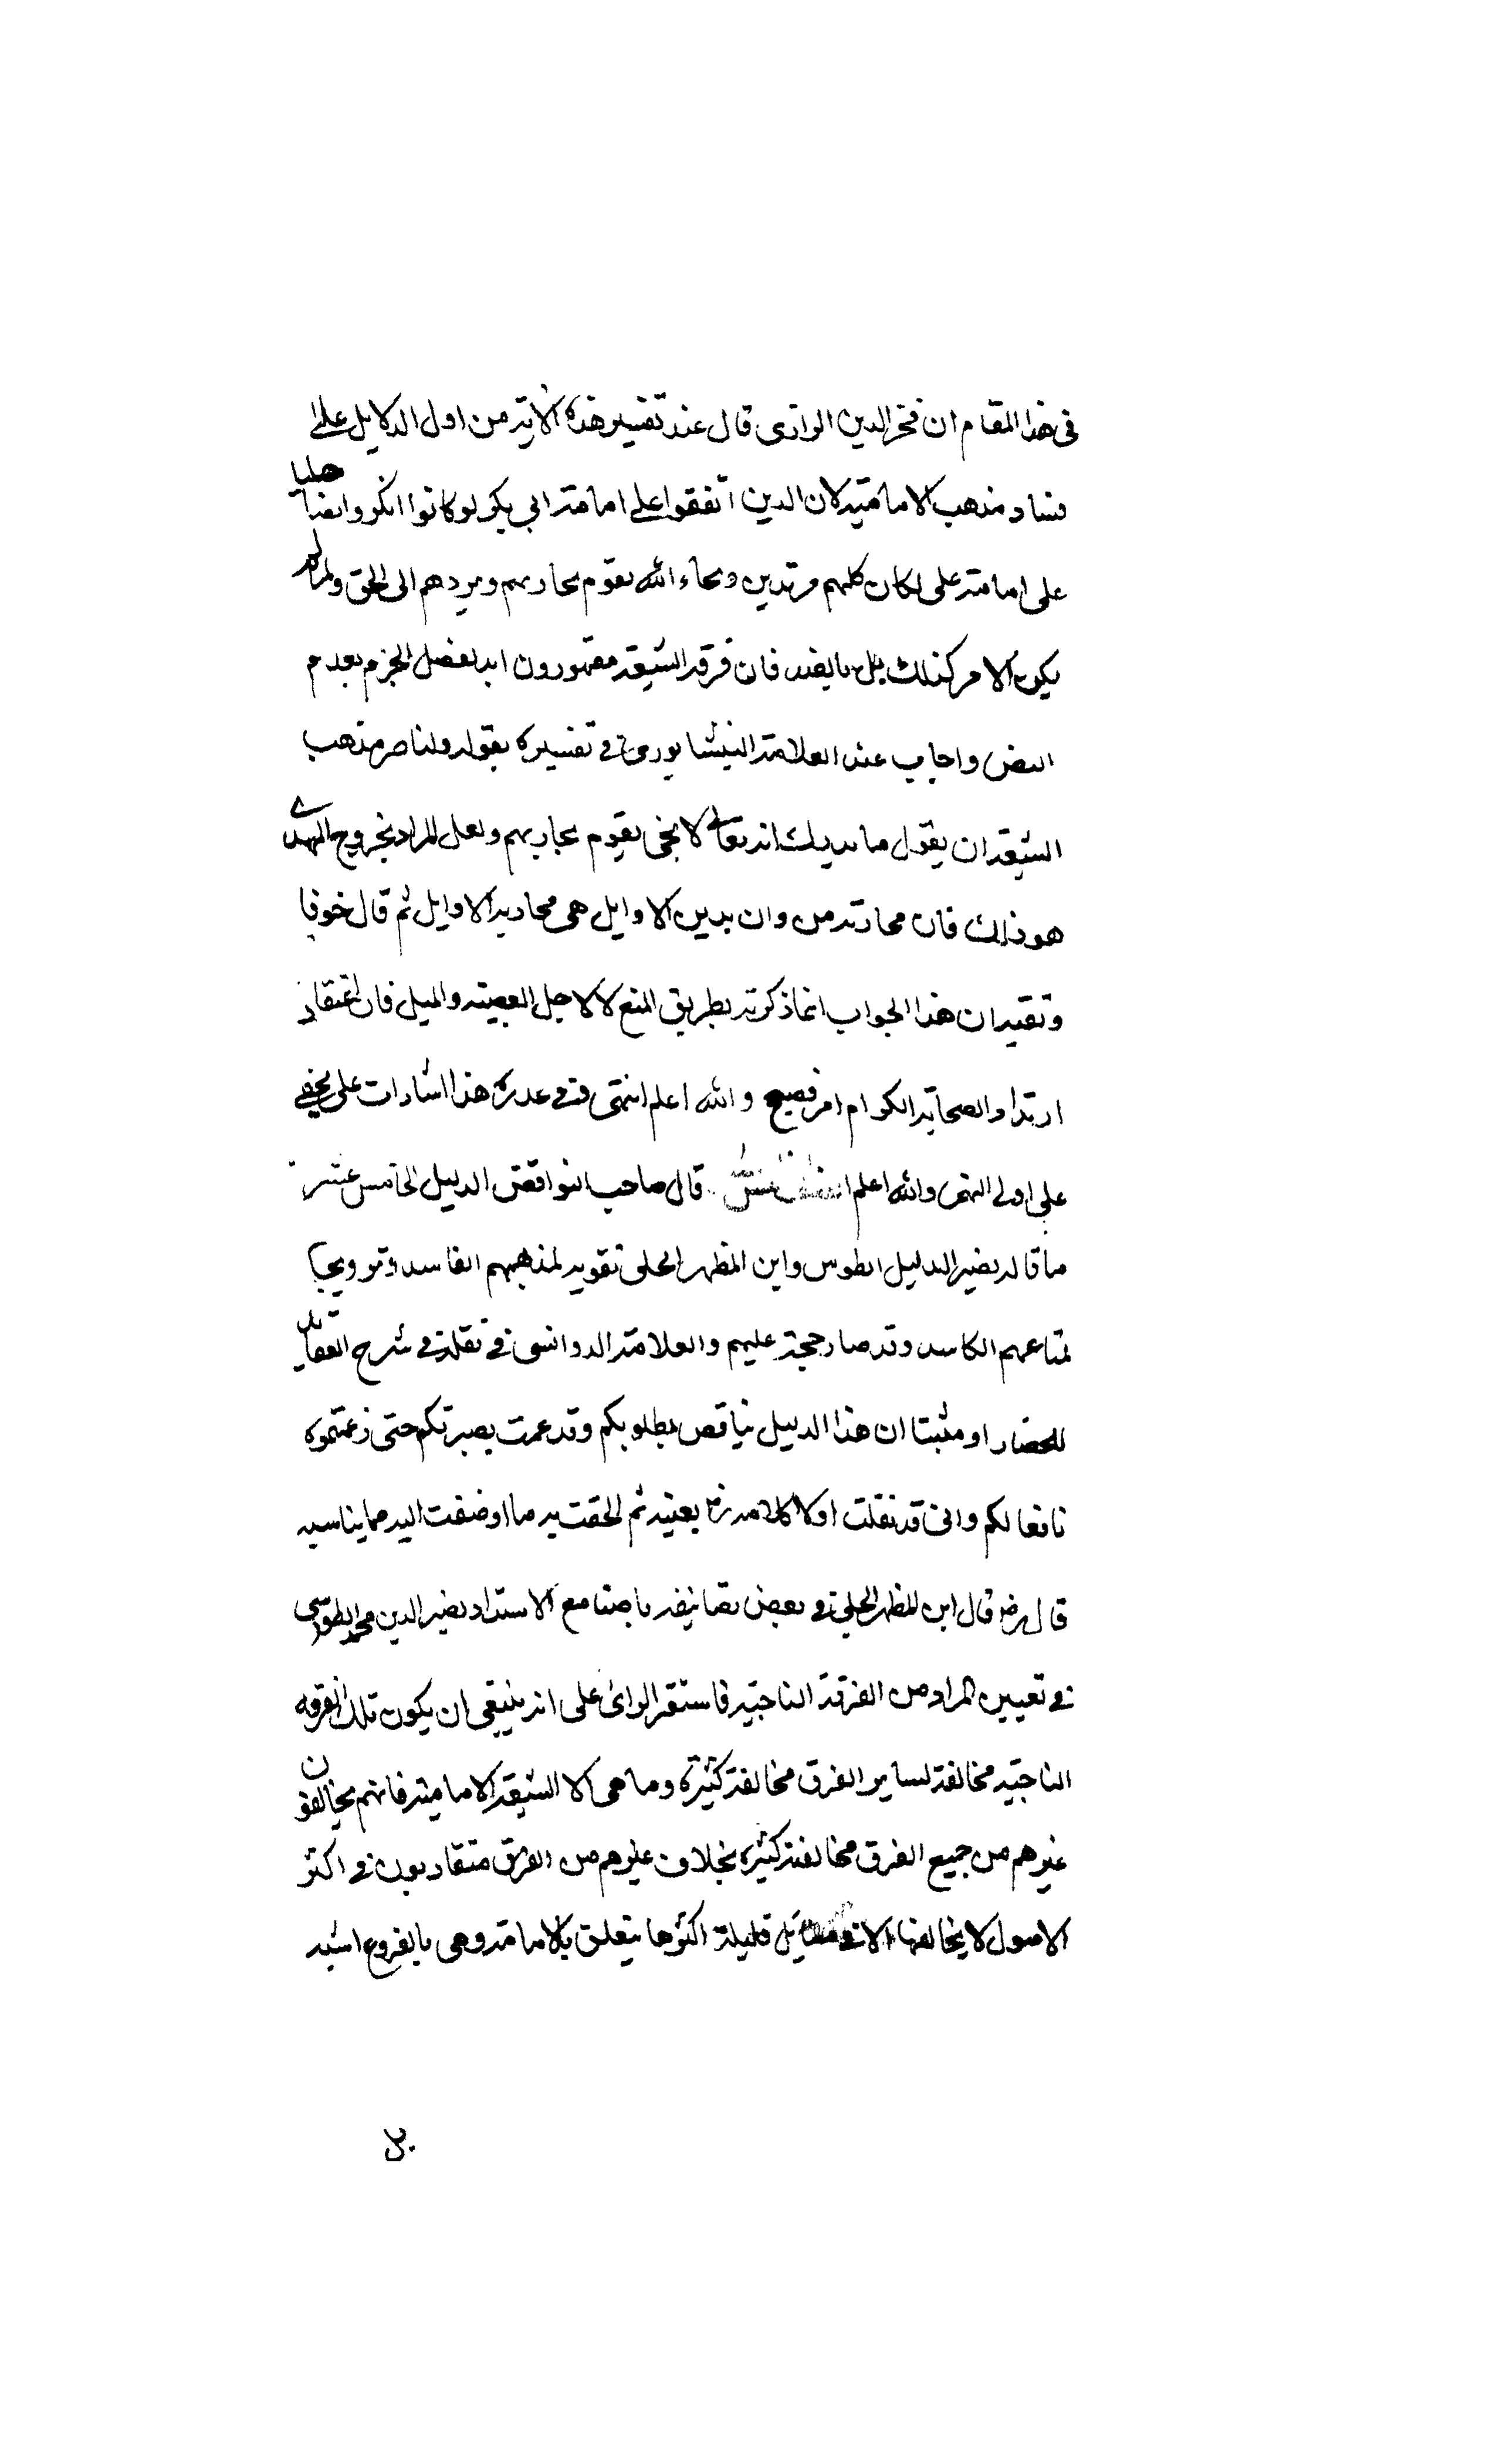 في هذا المقام ان فخر الدين الرازي قال عند تفسير هذه الاية من اول الدلايل على
فساد مذهب الامامية لان الدين اتفقوا على امامة ابي بكر لو كانوا انكروا نصا جليا
على امامة علي لكان كلهم مرتدين وجاء الله بقوم يحاربهم ويردهم الى الحق ولما لم
يكن الامر كذلك بل بالضد فان فرقة الشيعة مقهورون ابدا حصل الجزم بعدم
النص واجاب عنه العلامة النيشابوري في تفسيره بقوله ولناصر مذهب
الشيعة ان يقول ما يدريك انه تعالى لا يجئ بقوم يحاربهم ولعل المراد بخروج المهدي
هو ذلك فان محاربة من دان بدين الاوايل هي محاربة الاوايل ثم قال خوفا
وتقية ان هذا الجواب انما ذكرته بطريق المنع لا لاجل العصبية والميل فان اعتقاد
ارتداد الصحابة الكرام امر فضيع والله اعلم انتهى وفي عذره هذا اشارات على يخفى
على اولي النهى والله اعلم قال صاحب النواقض الدليل الخامس عشر
ما قاله نصير الدليل الطوس وابن المطهر الحلي تقوية لمذهبهم الفاسد وترويجا
لمتاعهم الكاسد وقد صار حجة عليهم والعلامة الدوانسى في نقله في شرح العقايد
للعضد او مثبتا ان هذا الدليل يناقض مطلوبكم وقد عمت بصيرتكم حتى زعمتموه
نافعا لكم واني قد نقلت اولا كلامه ره بعينه ثم الحقت به ما اوضفت اليه مما يناسبه
قال رضي قال ابن المطهر الحلي في بعض تصانيفه باحثنا مع الاستاد نصير الدين محمد الطوسي
في تعيين المراد من الفرقة الناجية فاستقر الراى على انه ينبغي ان يكون تلك الفرقه
الناجية مخالفة لساير الفرق مخالفة كثيرة وما هي الا الشيعة الامامية فانهم يخالفون
غيرهم من جميع الفرق مخالفة كثيرة بخلاف غيرهم من الفرق متقاربون في اكثر
الاصول لا يخالفها الا في مسايل قليلة اكثرها يتعلق بالامامة وهي بالفروع اشبه
بل